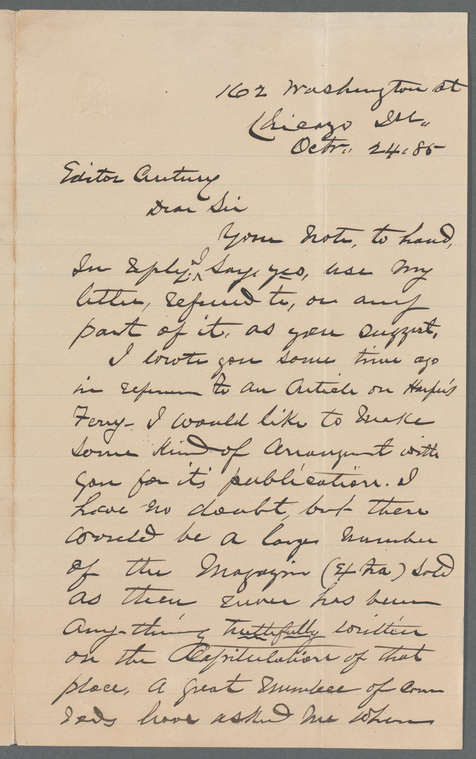 162 Washington St
Chicago Ill.,
Octr.. 24.85
Editor Century
Dear Sir
Your Note, to hand,
In reply, I say, yes, use my
letter, refered to, or any
part of it, as you suggest,
I wrote you some time ago
in referenc to an Article on Harper's
Ferry - I would like to make
some kind of Arrangment with
you for it's publication. I
have no doubt, but there
would be a large Number
of the Magazine (Extra) Sold
as there never has been
Any-thing truthfully written
on the Capitulation of that
place, A great number of Com
rads have asked me when